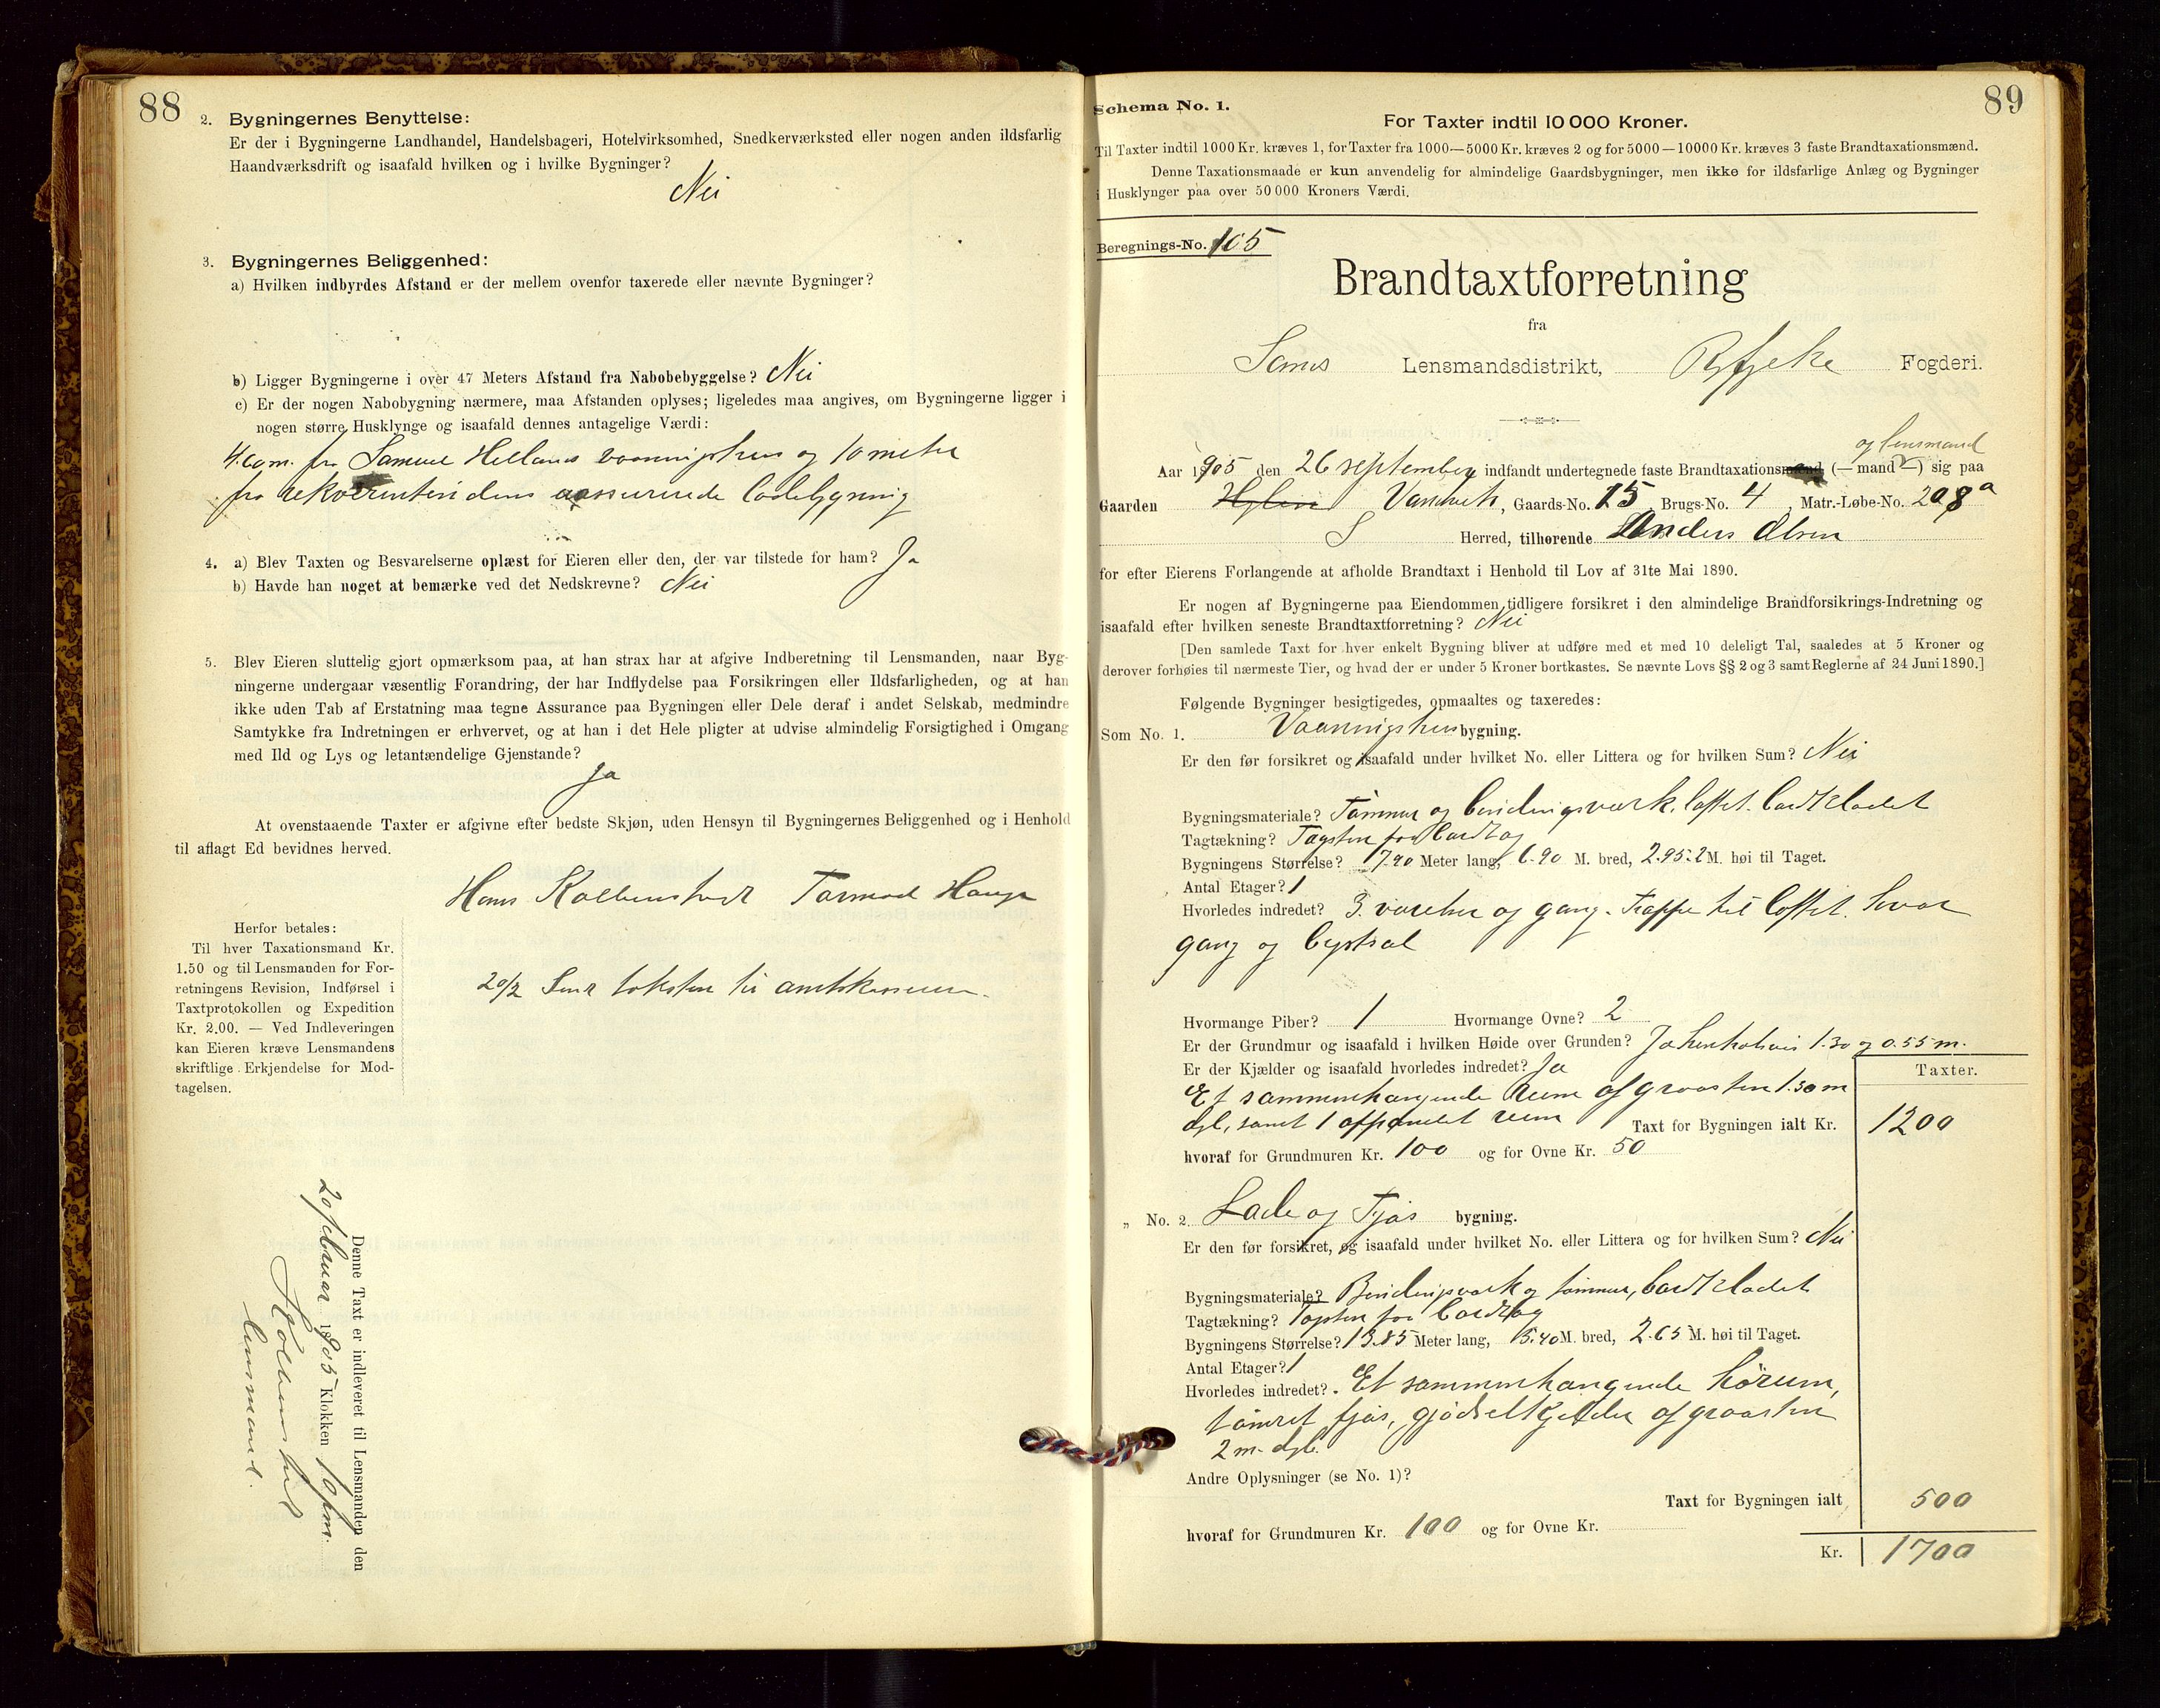 88
2. Bygningernes Benyttelse:
Er der i Bygningerne Landhandel, Handelsbageri, Hotelvirksomhed, Snedkerværksted eller nogen anden ildsfarlig
Haandværksdrift og isaafald hvilken og i hvilke Bygninger?
Nei
3. Bygningernes Beliggenhed:
a) Hvilken indbyrdes Afstand er der mellem ovenfor taxerede eller nævnte Bygninger?
b) Ligger Bygningerne i over 47 Meters Afstand fra Nabobebyggelse? Nei
c) Er der nogen Nabobygning nærmere, maa Afstanden oplyses; ligeledes maa angives, om Bygningerne ligger i
nogen større Husklynge og isaafald dennes antagelige Værdi:
fra Samuel Hellands vaaningshus og 10 meter
fra rekvirentendens assurerede ladebygning
4. a) Blev Taxten og Besvarelserne oplæst for Eieren eller den, der var tilstede for ham? Ja
b) Havde han noget at bemærke ved det Nedskrevne? Nei
5. Blev Eieren sluttelig gjort opmærksom paa, at han strax har at afgive Indberetning til Lensmanden, naar Byg-
ningerne undergaar væsentlig Forandring, der har Indflydelse paa Forsikringen eller Ildsfarligheden, og at han
ikke uden Tab af Erstatning maa tegne Assurance paa Bygningen eller Dele deraf i andet Selskab, medmindre
Samtykke fra Indretningen er erhvervet, og at han i det Hele pligter at udvise almindelig Forsigtighed i Omgang
med Ild og Lys og letantændelige Gjenstande?
Ja
At ovenstaaende Taxter er afgivne efter bedste Skjøn, uden Hensyn til Bygningernes Beliggenhed og i Henhold
til aflagt Ed bevidnes herved.
Hans Kolbenstvedt Tormod Hauge
Herfor betales:
Til hver Taxationsmand Kr.
1.50 og til Lensmanden for For-
retningens Revision, Indførsel i
Taxtprotokollen og Expedition
Kr. 2.00. — Ved Indleveringen
kan Eieren kræve Lensmandens
skriftlige Erkjendelse for Mod-
tagelsen.
20/2 Sendt taksten til
Denne Taxt er indleveret til Lensmanden den
20 februar 1905 Klokken 10 fm.
Kolbenstvedt
lensmand.
89
Schema No. 1.
For Taxter indtil 10 000 Kroner.
Til Taxter indtil 1000 Kr. kræves 1, for Taxter fra 1000—5000 Kr. kræves 2 og for 5000—10000 Kr. kræves 3 faste Brandtaxationsmænd.
Denne Taxationsmaade er kun anvendelig for almindelige Gaardsbygninger, men ikke for ildsfarlige Anlæg og Bygninger
i Husklynger paa over 50 000 Kroners Værdi.
Beregnings-No. 105
Brandtaxtforretning
fra
Lensmandsdistrikt, Ryfylke Fogderi.
og lensmand
Aar 1905 den 26 september indfandt undertegnede faste Brandtaxationsmænd (—mand—) sig paa
Gaarden Vandvik, Gaards-No. 15 Brugs-No. 4 Matr.-Løbe-No. 208a
S Herred, tilhørende Anders Olsen
for efter Eierens Forlangende at afholde Brandtaxt i Henhold til Lov af 31te Mai 1890.
Er nogen af Bygningerne paa Eiendommen tidligere forsikret i den almindelige Brandforsikrings-Indretning og
isaafald efter hvilken seneste Brandtaxtforretning? Nei
[Den samlede Taxt for hver enkelt Bygning bliver at udføre med et med 10 deleligt Tal, saaledes at 5 Kroner og
derover forhøies til nærmeste Tier, og hvad der er under 5 Kroner bortkastes. Se nævnte Lovs §§ 2 og 3 samt Reglerne af 24 Juni 1890.]
Følgende Bygninger besigtigedes, opmaaltes og taxeredes:
Som No. 1. Vaaningshus bygning.
Er den før forsikret og isaafald under hvilket No. eller Littera og for hvilken Sum? Nei
Bygningsmateriale? Tømmer og bindingsværk. loftet. bordklædet
Tagtækning? Tagsten paa bordtag
Bygningens Størrelse? 7.90 Meter lang, 6.90 M. bred, 2.95.2 M. høi til Taget.
Antal Etager? 1
Hvorledes indredet? 3 værelser og gang. Trappe til loftet, hvor
gang og lystsal
Hvormange Piber? 1 Hvormange Ovne? 2
Er der Grundmur og isaafald i hvilken Høide over Grunden? Ja henholdsvis 1.30 og 0.55 m.
Er der Kjælder og isaafald hvorledes indredet? Ja
Taxter.
Et sammenhængende rum af graasten 1.30 m
dyb, samt 1 oppanelet rum Taxt for Bygningen ialt Kr. 1200
hvoraf for Grundmuren Kr. 100 og for Ovne Kr. 50
„ No. 2. Lade og Fjøs bygning.
Er den før forsikret, og isaafald under hvilket No. eller Littera og for hvilken Sum? Nei
Bygningsmateriale? Bindingsværk og tømmer, bordklædet
Tagtækning? Tagsten paa bordtag
Bygningens Størrelse? 13.85 Meter lang, 5.40 M. bred, 2.65 M. høi til Taget.
Antal Etager? 1
Hvorledes indredet? Et sammenhængende hörum,
tømret fjøs, gjødselkjelder af graasten
2 m. dyb.
Andre Oplysninger (se No. 1)?
Taxt for Bygningen ialt 500
hvoraf for Grundmuren Kr. 100 og for Ovne Kr.
Kr. 1700